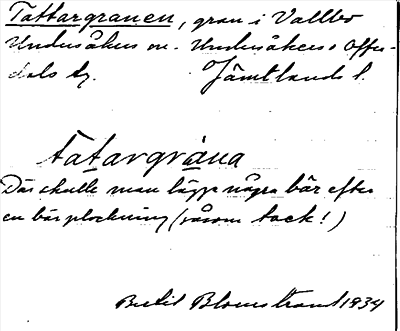 Tattargranen, gran i Vallbo
Undersåkers sn. Undersåkers o Offer-
dals tg. Jämtlands l.
tatargràna
Där skulle man lägga några bär efter
en bärplockning (såsom tack!)
Bertil Blomstrand 1934